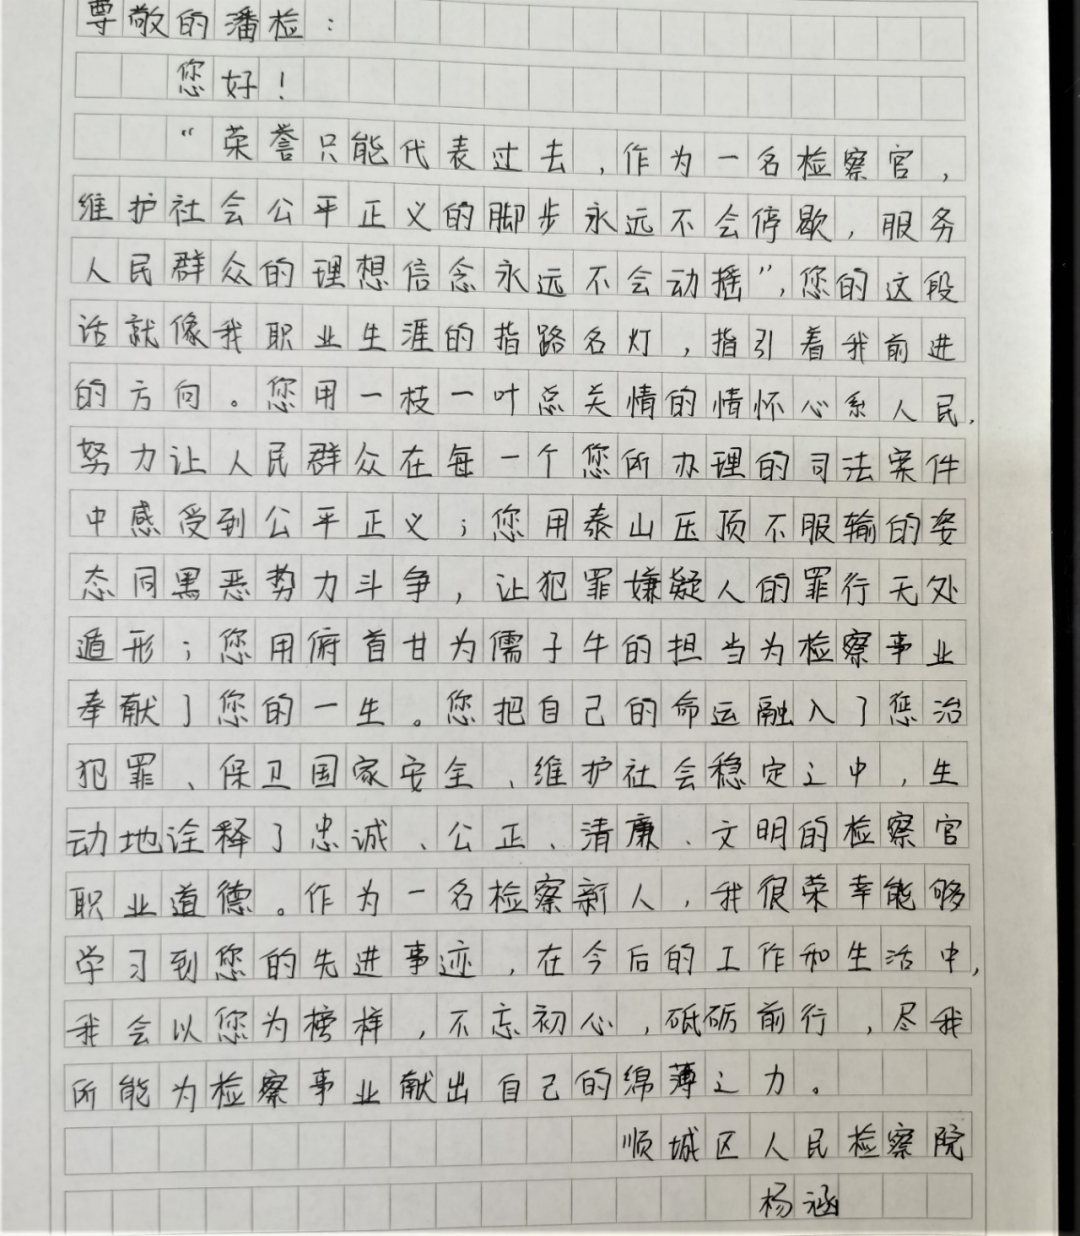 尊敬的潘检：
您好！
“荣誉只能代表过去，作为一名检察官，
维护社会公平正义的脚步永远不会停歇，服务
人民群众的理想信念永远不会动摇”，您的这段
话就像我职业生涯的指路名灯，指引着我前进
的方向。您用一枝一叶总关情的情怀心系人民，
努力让人民群众在每一个您所办理的司法案件
中感受到公平正义；您用泰山压顶不服输的姿
态同黑恶势力斗争，让犯罪嫌疑人的罪行无处
遁形；您用俯首甘为儒子牛的担当为检察事业
奉献了您的一生。您把自己的命运融入了惩治
犯罪、保卫国家安全、维护社会稳定之中，生
动地诠释了忠诚、公正、清廉、文明的检察官
职业道德。作为一名检察新人，我很荣幸能够
学习到您的先进事迹，在今后的工作和生活中，
我会以您为榜样，不忘初心，砥砺前行，尽我
所能为检察事业献出自己的绵薄之力。
顺城区人民检察院
杨涵